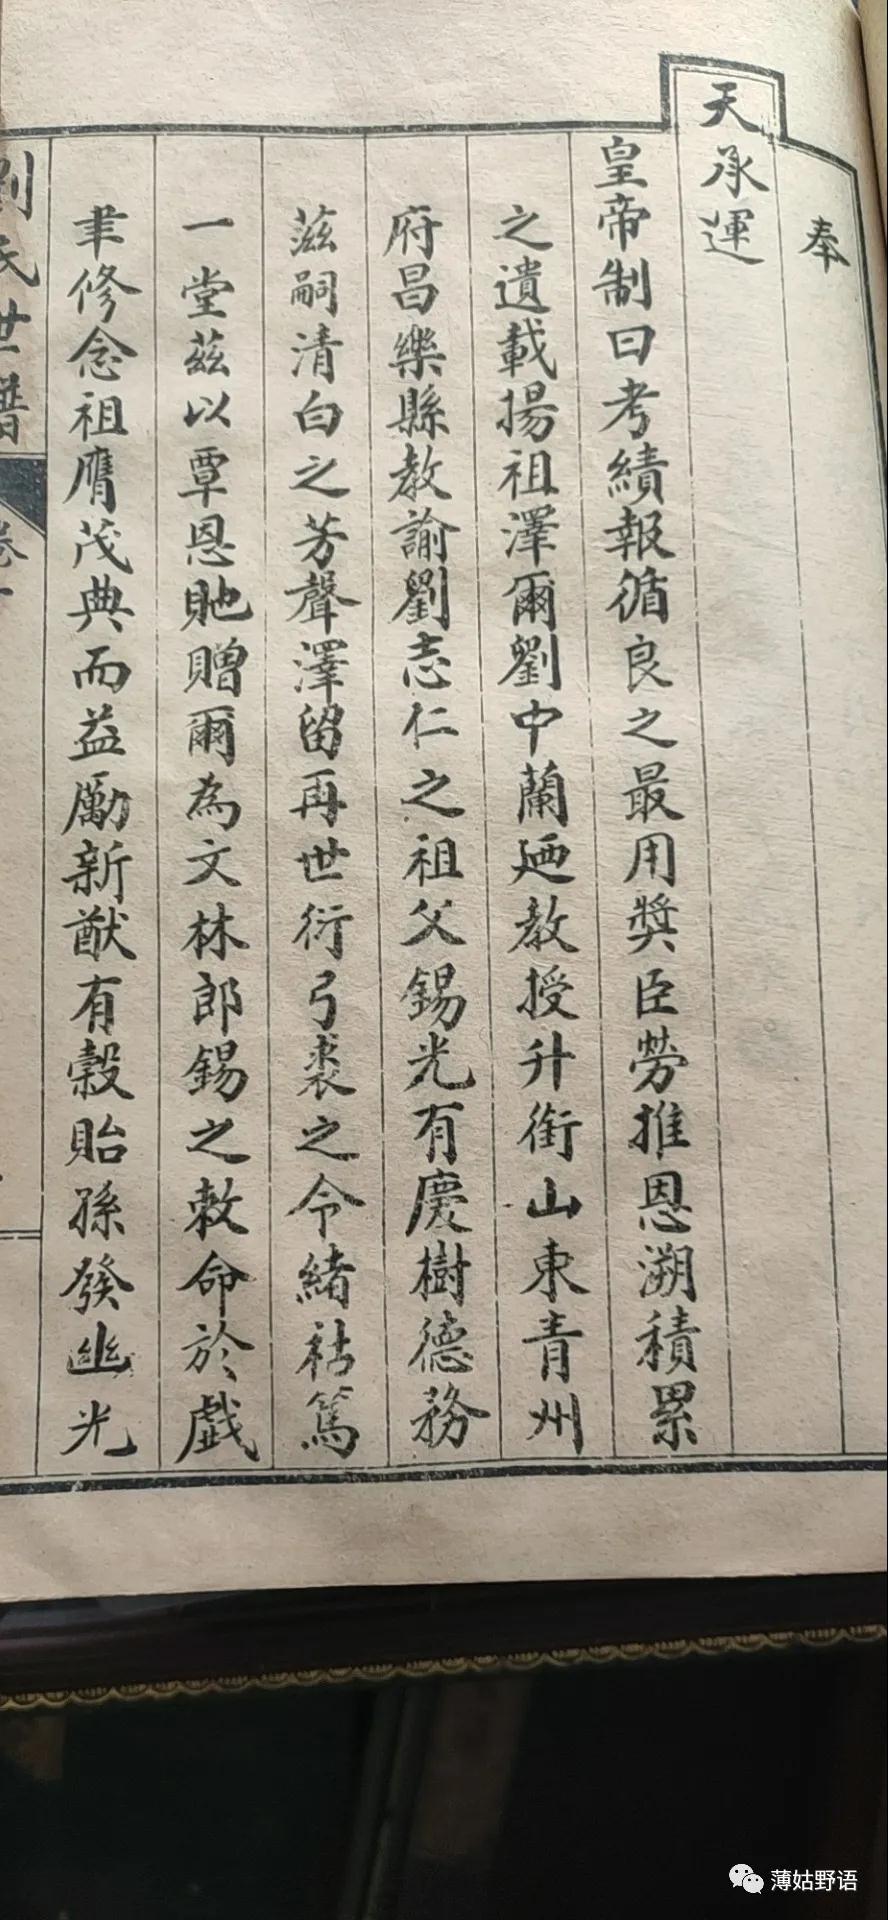 奉
天承運
皇帝制曰考績報循良之最用獎臣勞推恩溯積累
之遺載揚祖澤爾劉中蘭廼教授升銜山東青州
府昌樂縣教諭劉志仁之祖父錫光有慶樹德務
滋嗣清白之芳聲澤留再世衍弓裘之令緒祜篤
一堂茲以覃恩貤贈爾為文林郎錫之敕命於戲
聿修念祖膺茂典而益勵新猷有穀貽孫發幽光
劉氏世譜
卷一
薄姑野语